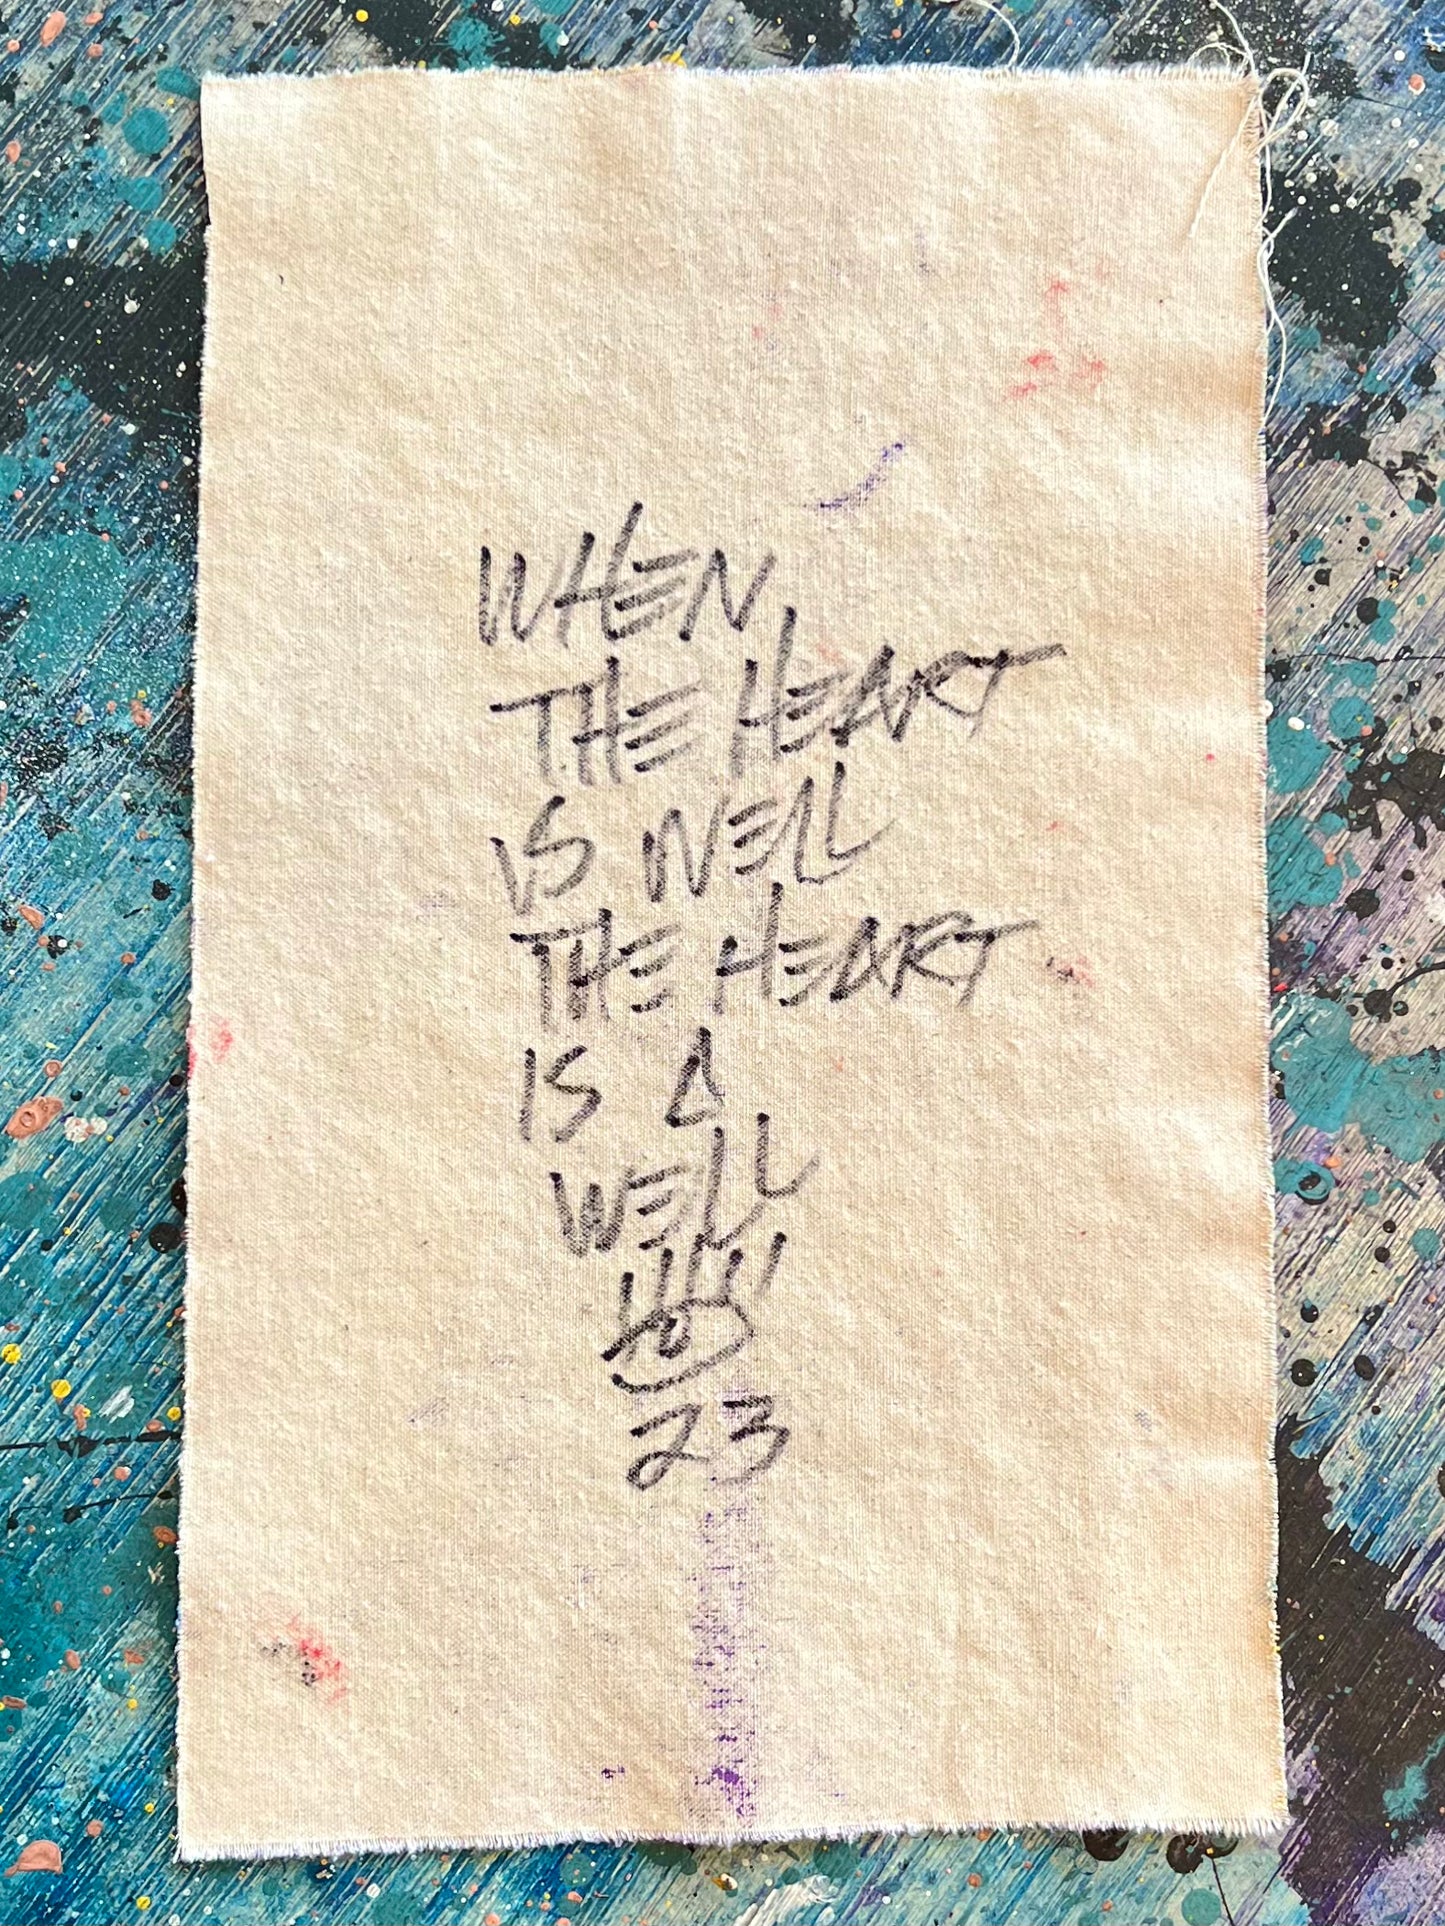 WHEN
THE HEART
IS WELL
THE HEART
IS A
WELL
23